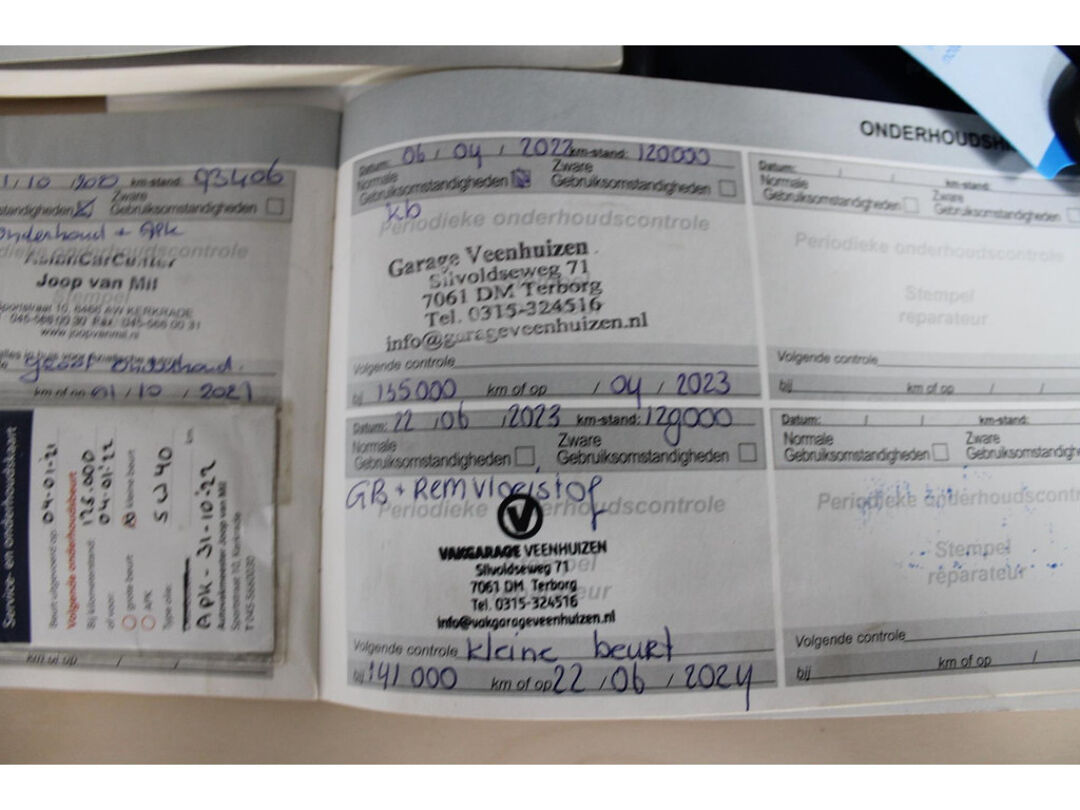 ONDERHOUDS
1/10 2020 km-stand: 93406
standigheden Zware Gebruiksomstandigheden
onderhoud + APK
AsianCarCenter
Joop van Mil
Stempel
Sportstraat 10, 6466 AW KERKRADE
045-566 00 30 Fax 045-566 00 31
www.joopvanmil.nl
groot onderhoud.
km of op 01/10/2021
Service- en onderhoudskaart
Beurt uitgevoerd op: 04-01-'21
Volgende onderhoudsbeurt
Bij kilometerstand: 125.000
of voor: 04-01-'22
grote beurt kleine beurt
APK
Type olie: 5W40
km
APK - 31-10-'22
Autovakmeester Joop van Mil
Sportstraat 10, Kerkrade
T (045-5660030
km of op / /
Datum: 06 / 04 / 2022 km-stand: 120000
Normale Gebruiksomstandigheden Zware Gebruiksomstandigheden
kb
Periodieke onderhoudscontrole
Garage Veenhuizen
Silvoldseweg 71
7061 DM Terborg
Tel. 0315-324516
info@garageveenhuizen.nl
Volgende controle
bij 135000 km of op / 04 / 2023
Datum: 22 /06 /2023 km-stand: 129000
Normale Gebruiksomstandigheden Zware Gebruiksomstandigheden
GB + Remvloeistof
Periodieke onderhoudscontrole
V
VAKGARAGE VEENHUIZEN
Silvoldseweg 71
7061 DM Terborg
Tel. 0315-324516
info@vakgarageveenhuizen.nl
Volgende controle kleine beurt
bij 141 000 km of op 22 /06 / 2024
Datum: / / km-stand:
Normale Gebruiksomstandigheden Zware Gebruiksomstandigheden
Periodieke onderhoudscontrole
Stempel
reparateur
Volgende controle
bij km of op / /
Datum: / / km-stand:
Normale Gebruiksomstandigheden Zware Gebruiksomstandighe
Periodieke onderhoudscont
Stempel
reparateur
Volgende controle
bij km of op /